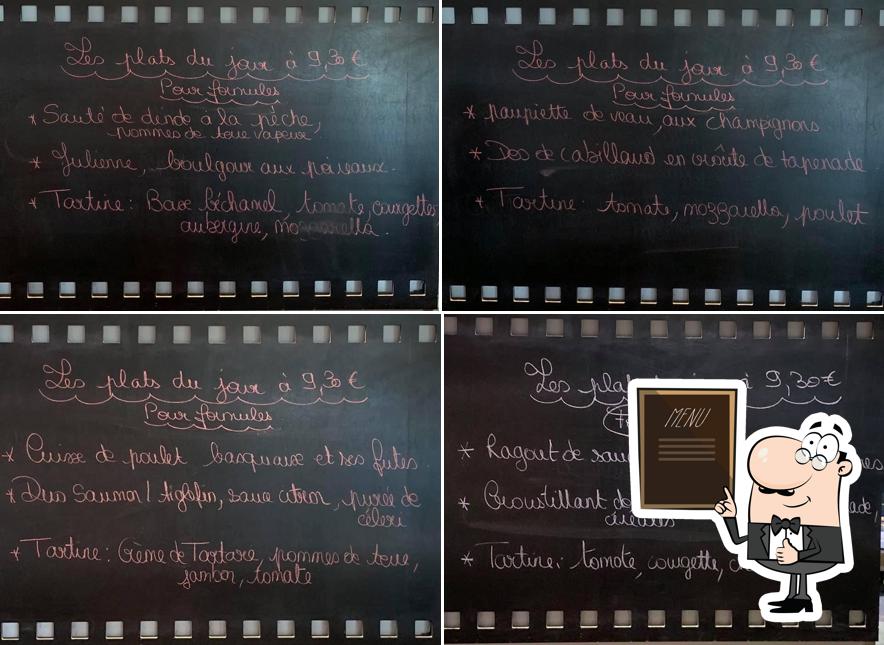 Les plats du jour à 9,30 €
Pour formules
* Sauté de dinde à la pêche,
pommes de terre vapeur
* Julienne, boulgour aux poireaux.
* Tartine: Base béchamel, tomate, courgettes,
aubergine, mozzarella.
Les plats du jour à 9,30 €
Pour formules
* paupiette de veau, aux champignons
* Dos de cabillaud en croûte de tapenade
* Tartine: tomate, mozzarella, poulet
Les plats du jour à 9,30 €
Pour formules
* Cuisse de poulet basquaise et ses frites
* Duo Saumon / Aiglefin, sauce citron, purée de
céleri
* Tartine: Crème de Tartare, pommes de terre,
jambon, tomate
Les à 9,30 €
* Ragout de
* Croustillant de
* Tartine: tomate, courgette,
MENU